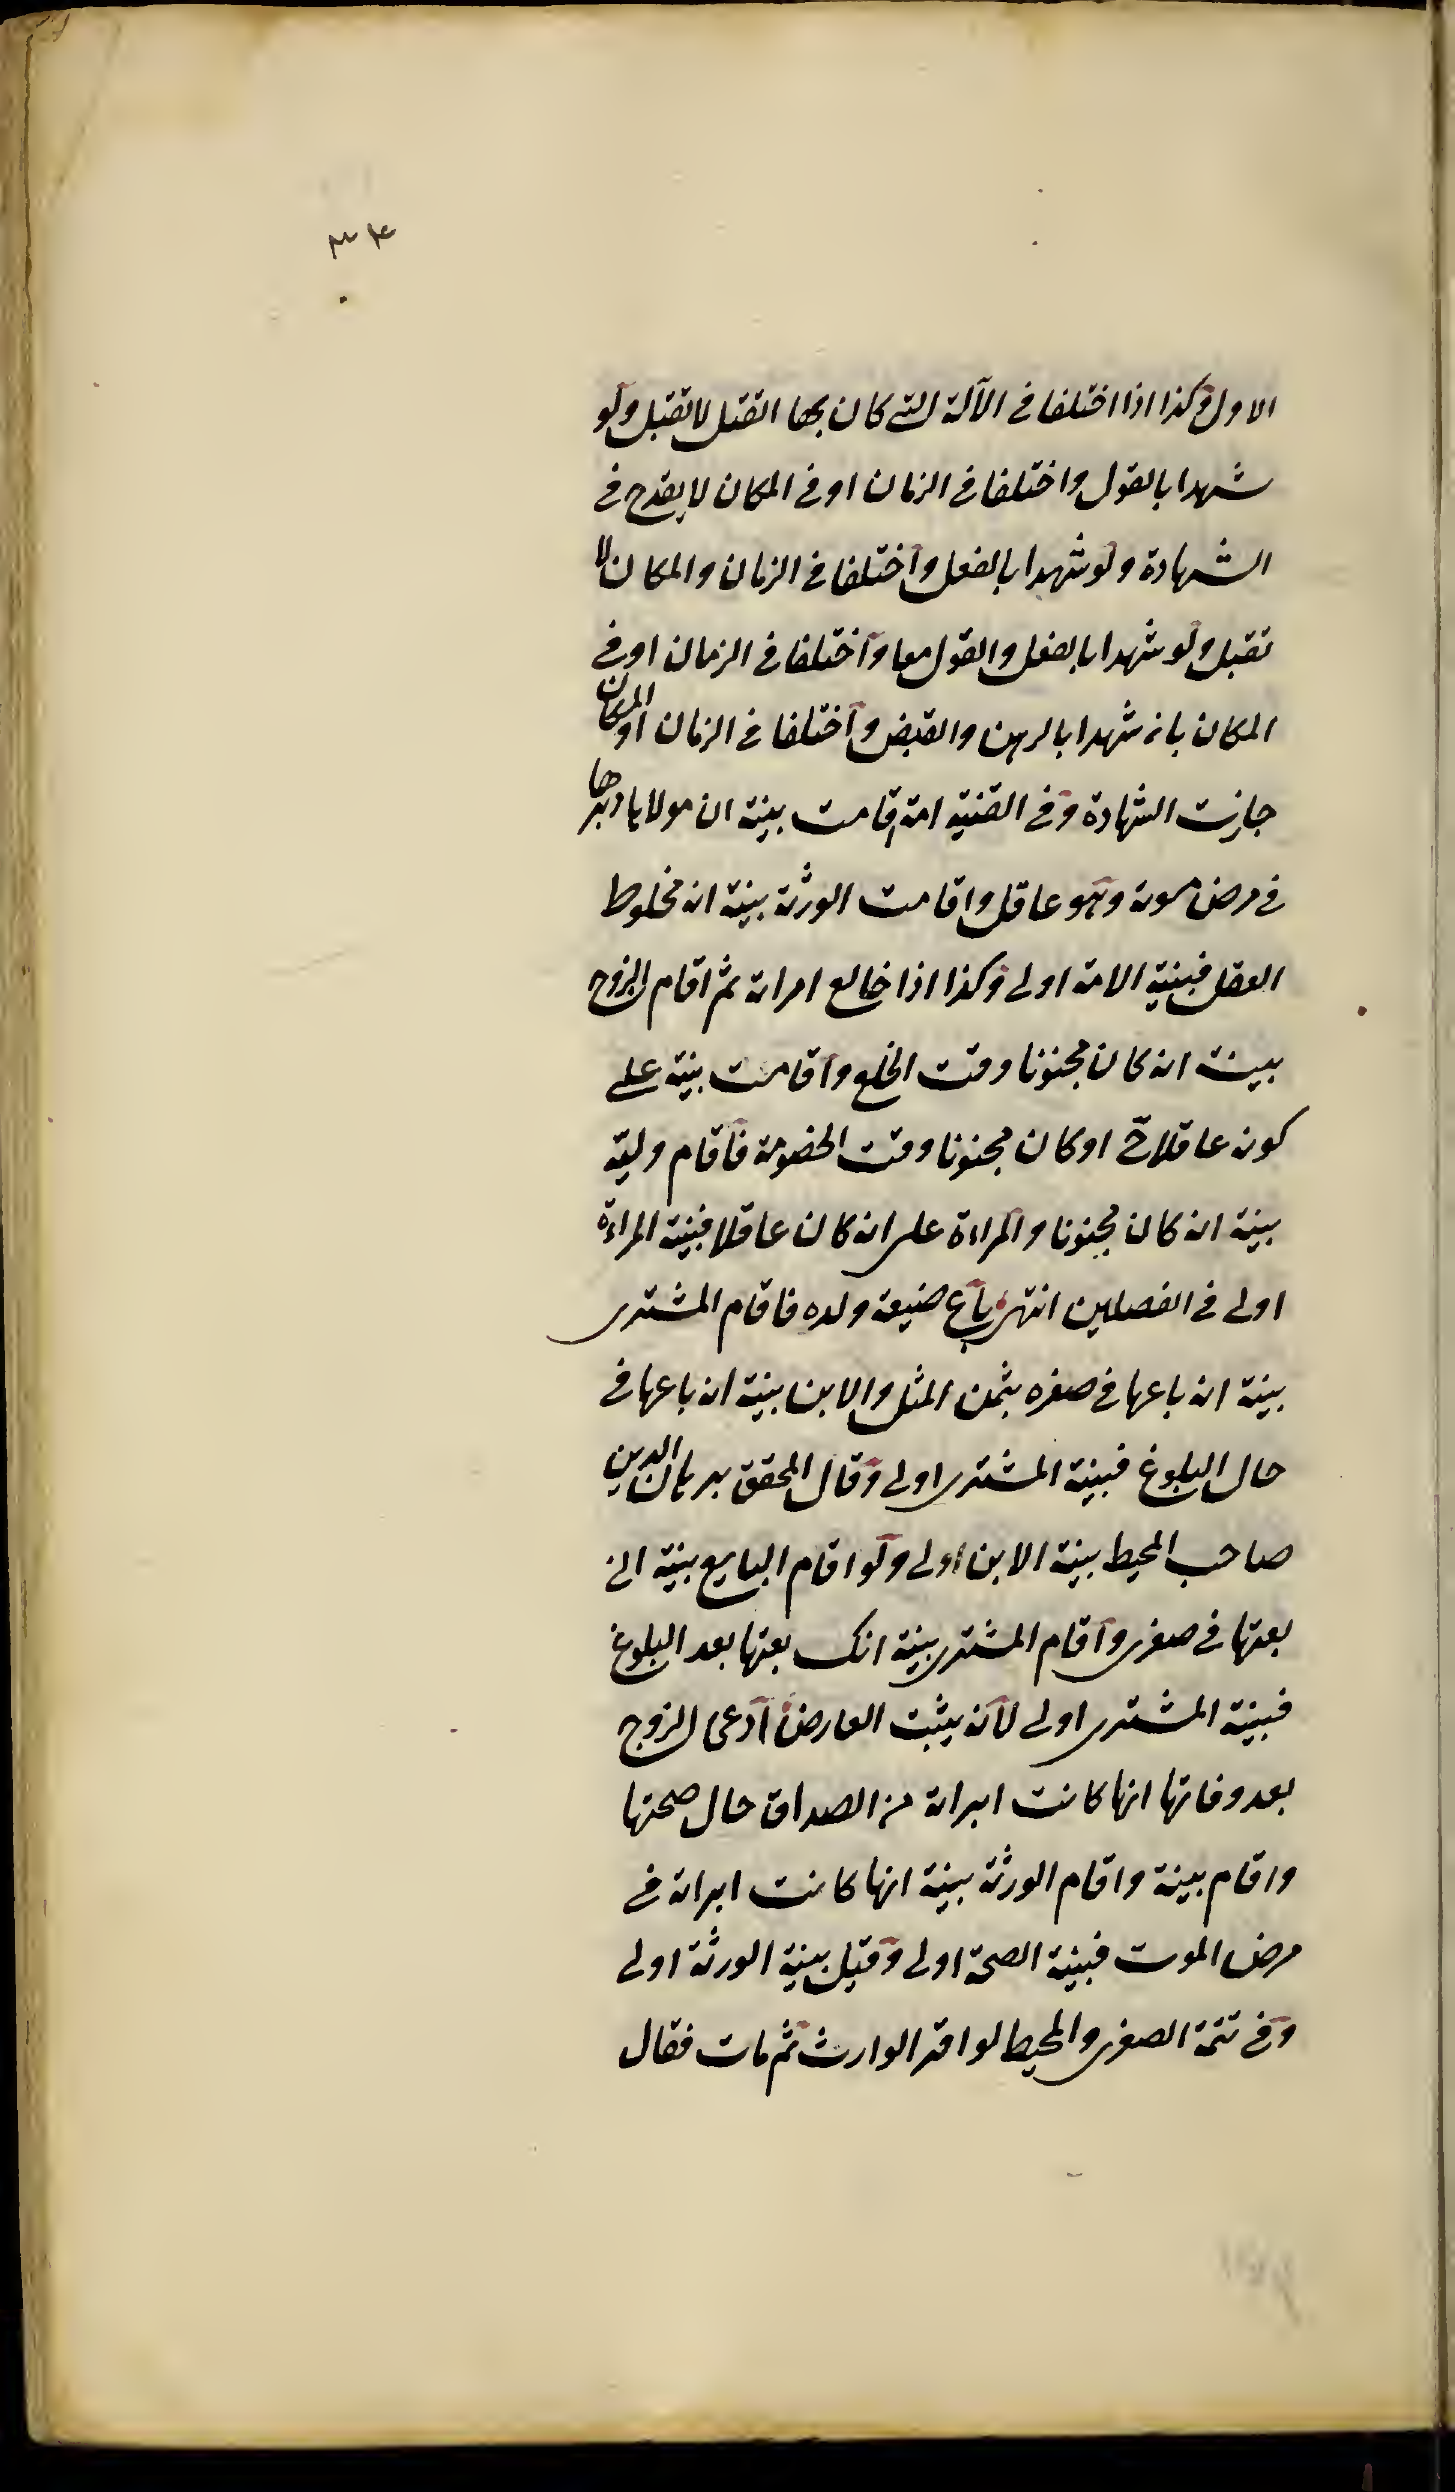 ٣٤
الاول وكذا اذا اختلفا فى الآلة التى كان بها القتل لا تقبل ولو
شهدا بالقول واختلفا فى الزمان او فى المكان لا يقدح فى
الشهادة ولو شهدا بالفعل واختلفا فى الزمان والمكان لا
تقبل ولو شهدا بالفعل والقول معا واختلفا فى الزمان او فى
المكان بان شهدا بالرهن والقبض واختلفا فى الزمان او المكان
جازت الشهادة وفى القنية امة اقامت بينة ان مولاها دبرها
فى مرض موته وهو عاقل واقامت الورثة بينة انه مخلوط
العقل فبينة الامة اولى وكذا اذا خالع امراته ثم اقام الزوج
بينة انه كان مجنونا وقت الخلع واقامت بينة على
كونه عاقلا ح او كان مجنونا وقت الخصومة فاقام وليه
بينة انه كان مجنونا والمراءة على انه كان عاقلا فبينة المراءة
اولى فى الفصلين انتهى باع ضيعة ولده فاقام المشترى
بينة انه باعها فى صغره بثمن المثل والابن بينة انه باعها فى
حال البلوغ فبينة المشترى اولى وقال المحقق برهان الدين
صاحب المحيط بينة الابن اولى ولو اقام البايع بينة انى
بعتها فى صغرى واقام المشترى بينة انك بعتها بعد البلوغ
فبينة المشترى اولى لانه يثبت العارض ادعى الزوج
بعد وفاتها انها كانت ابراته من الصداق حال صحتها
واقام بينة واقام الورثة بينة انها كانت ابراته فى
مرض الموت فبينة الصحة اولى وقيل بينة الورثة اولى
وفى تتمة الصغرى والمحيط لو اقر الوارث ثم مات فقال